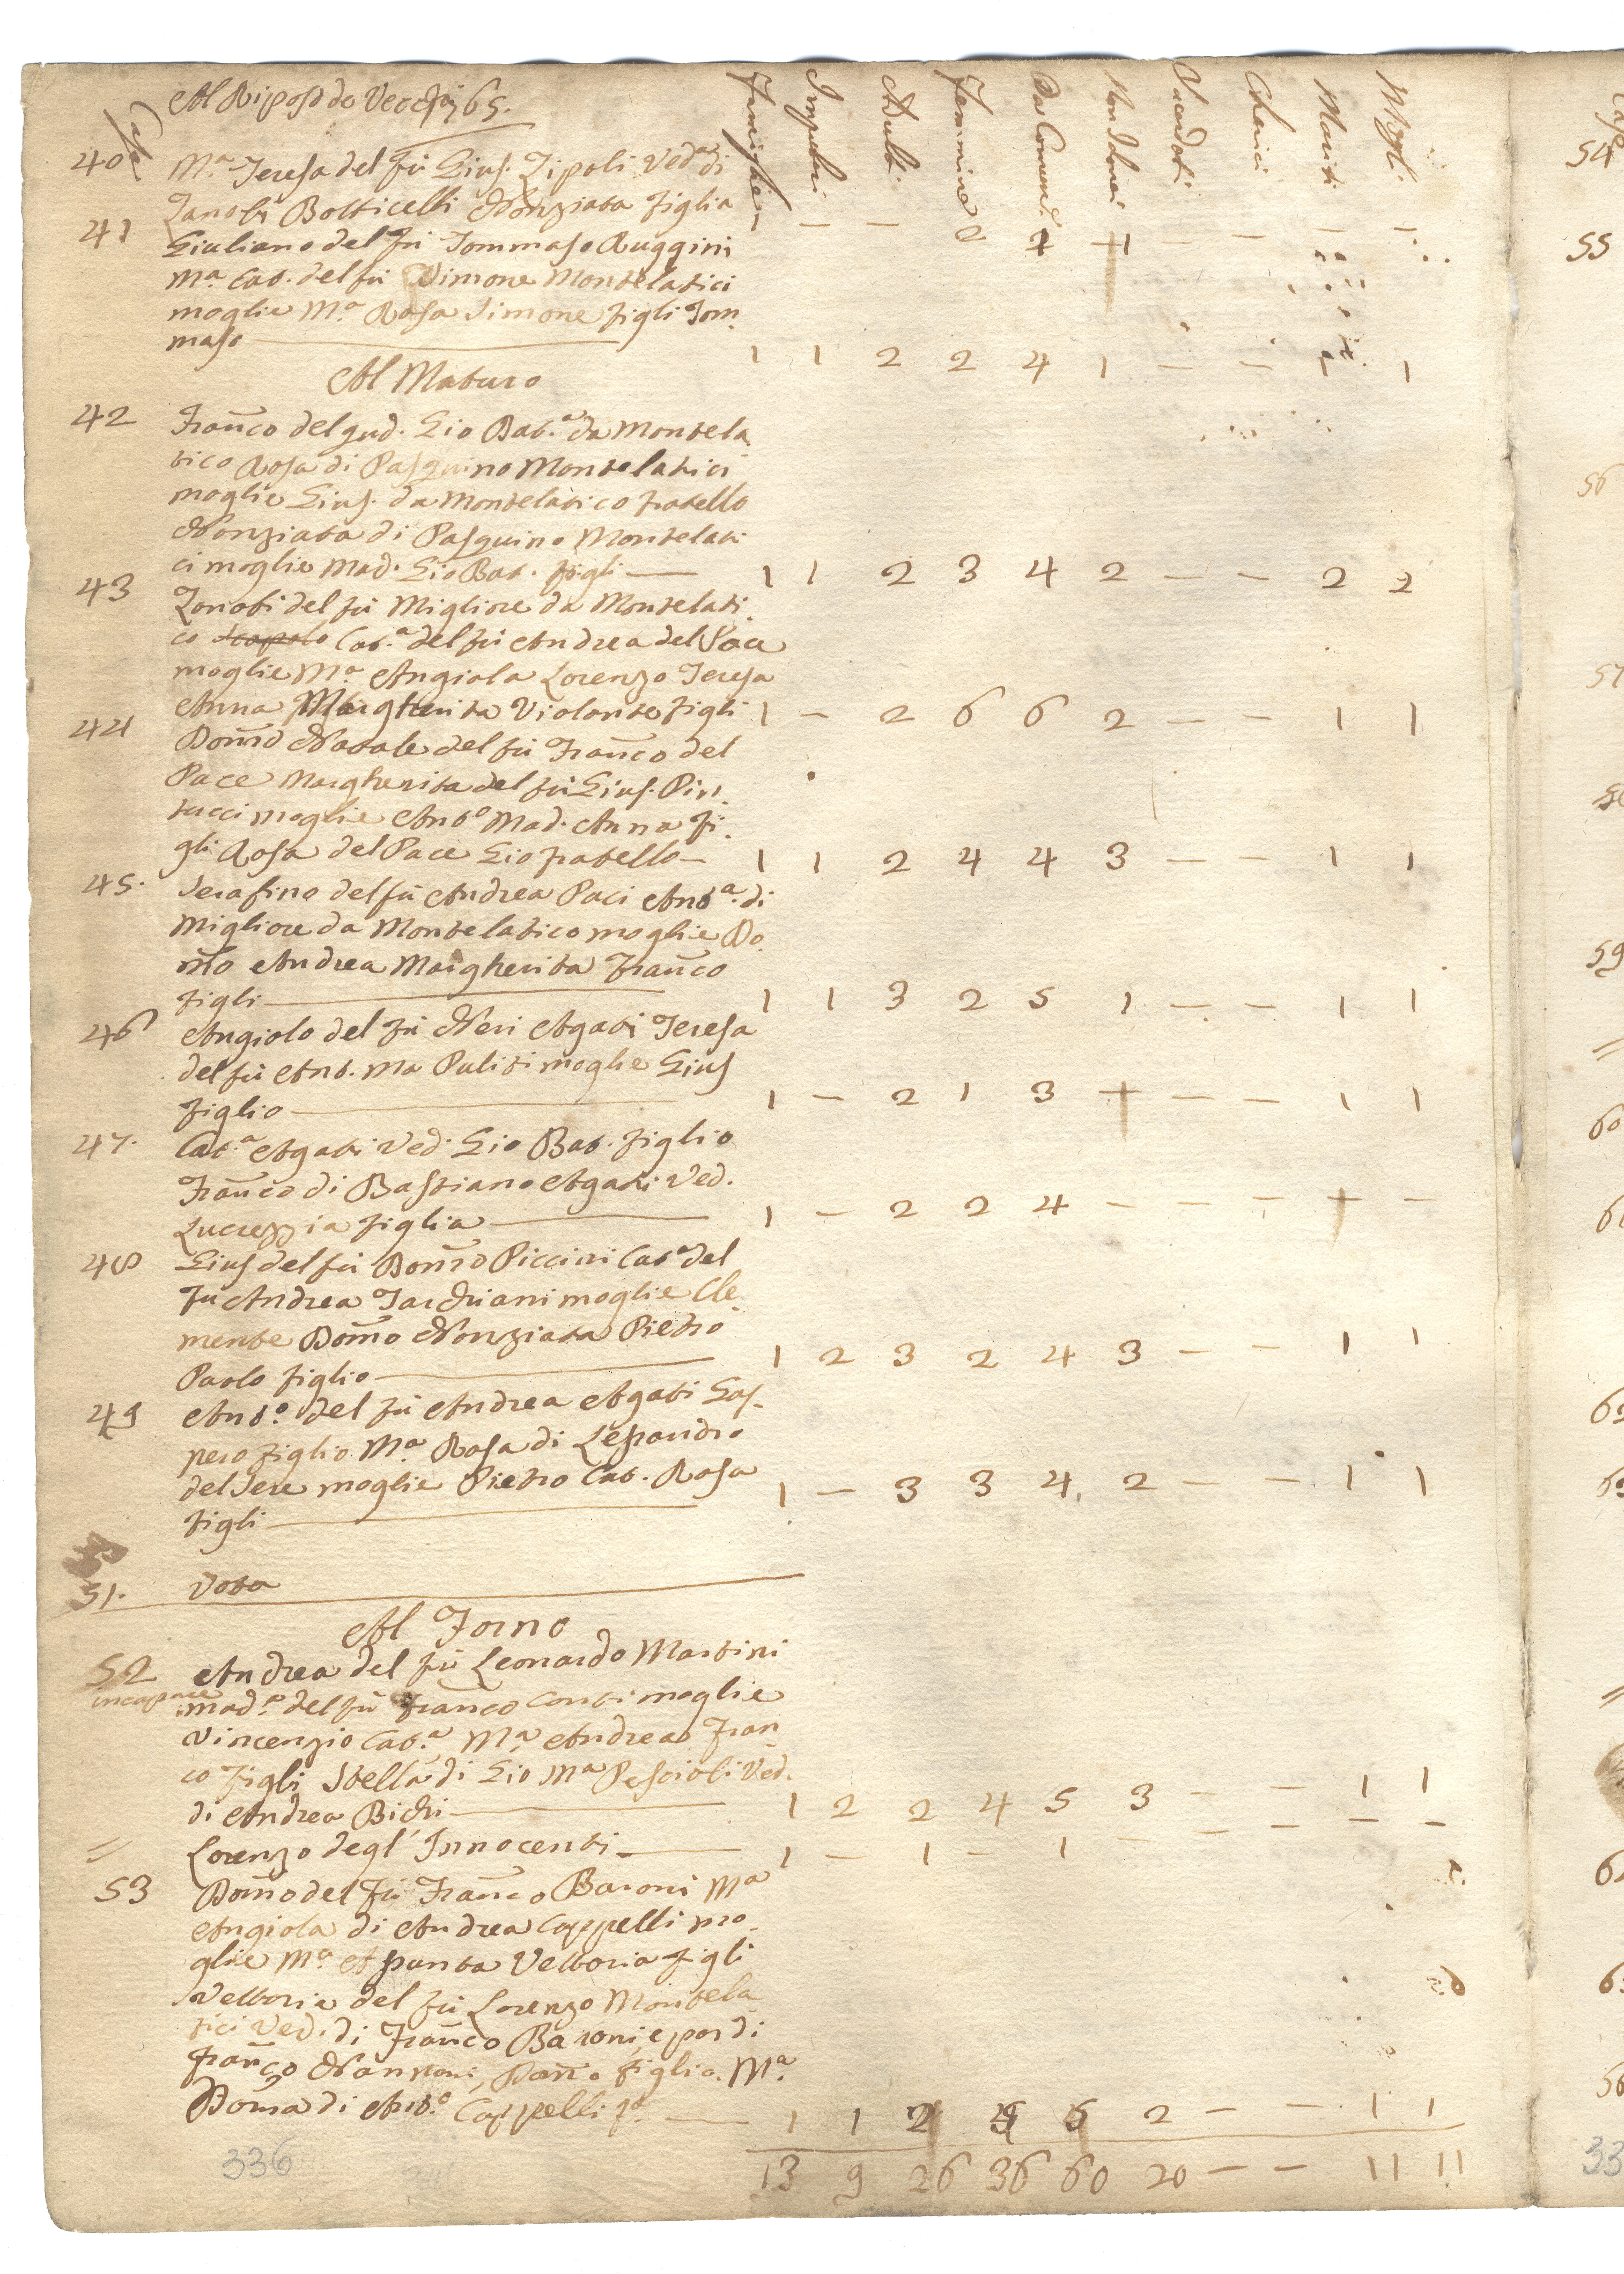 Al Riposo de Vecchi 65.
Case Famiglie Impuberi Adulti Femmine Da Comun. Non Idonei Sacerdoti Cherici Mariti Mogli
40 M.a Teresa del fù Gius. Zipoli Ved.a di
Zanobi Botticelli Nonziata figlia 1 — — 2 2 + — — — —
41 Giuliano del fù Tommaso Ruggini
M.a Cat. del fù Simone Montelatici
moglie M.a Rosa Simone figli Tom
maso 1 1 2 2 4 1 — — 1 1
Al Maturo
42 Franco del qud. Gio Bat.a da Montela
tico Rosa di Pasquino Montelatici
moglie Gius. da Montelatico fratello
Nonziata di Pasquino Montelati
ci moglie Mad. Gio Bat. figli 1 1 2 3 4 2 — — 2 2
43 Zanobi del fù Migliore da Montelati
co Cat.a del fù Andrea del Pace
moglie M.a Angiola Lorenzo Teresa
Anna Margherita Violante figli 1 — 2 6 6 2 — — 1 1
44 Dom̃co Natale del fù Franco del
Pace Margherita del fù Gius. Pin
tucci moglie Ant.o Mad. Anna fi
gli Rosa del Pace Gio fratello 1 1 2 4 4 3 — — 1 1
45. Serafino del fù Andrea Paci Ant.a di
Migliore da Montelatico moglie Do
m̃co Andrea Margherita Franco
figli 1 1 3 2 5 1 — — 1 1
46 Angiolo del fù Neri Agati Teresa
del fù Ant. Ma Puliti moglie Gius
figlio 1 — 2 1 3 + — — 1 1
47. Cat.a Agati Ved. Gio Bat. figlio
Franco di Bastiano Agati Ved.
Lucrezzia figlia 1 — 2 2 4 — — — + —
48 Gius del fù Dom̃co Piccini Cat.a del
fù Andrea Tarchiani moglie Cle
mente Dom̃o Nonziata Pietro
Paolo figlio 1 2 3 2 4 3 — — 1 1
49 Ant.o del fù Andrea Agati Gas
pero figlio M.a Rosa di Lessandro
del Sere moglie Pietro Cat. Rosa
figli 1 — 3 3 4 2 — — 1 1
51. Vota
Al Forno
52 Andrea del fù Leonardo Martini
incapace mad.a del fù Franco Conti moglie
Vincenzio Cat.a M.a Andrea Fran
co figli Stella di Gio Ma Pescioli Ved.
di Andrea Bichi 1 2 2 4 5 3 — — 1 1
= Lorenzo degl' Innocenti 1 — 1 — 1 — — — — —
53 Dom̃o del fù Franco Baroni Ma
Angiola di Andrea Cappelli mo
glie M.a Assunta Vettoria figli
Vettoria del fù Lorenzo Montela
tici Ved. di Franco Baroni, e poi di
Franco Nannoni, figlia. M.a
Dom̃a di Ant.o Cappelli 1 1 2 5 2 — — 1 1
336
13 9 26 36 60 20 — — 11 11
54
55
56
57
59
=
60